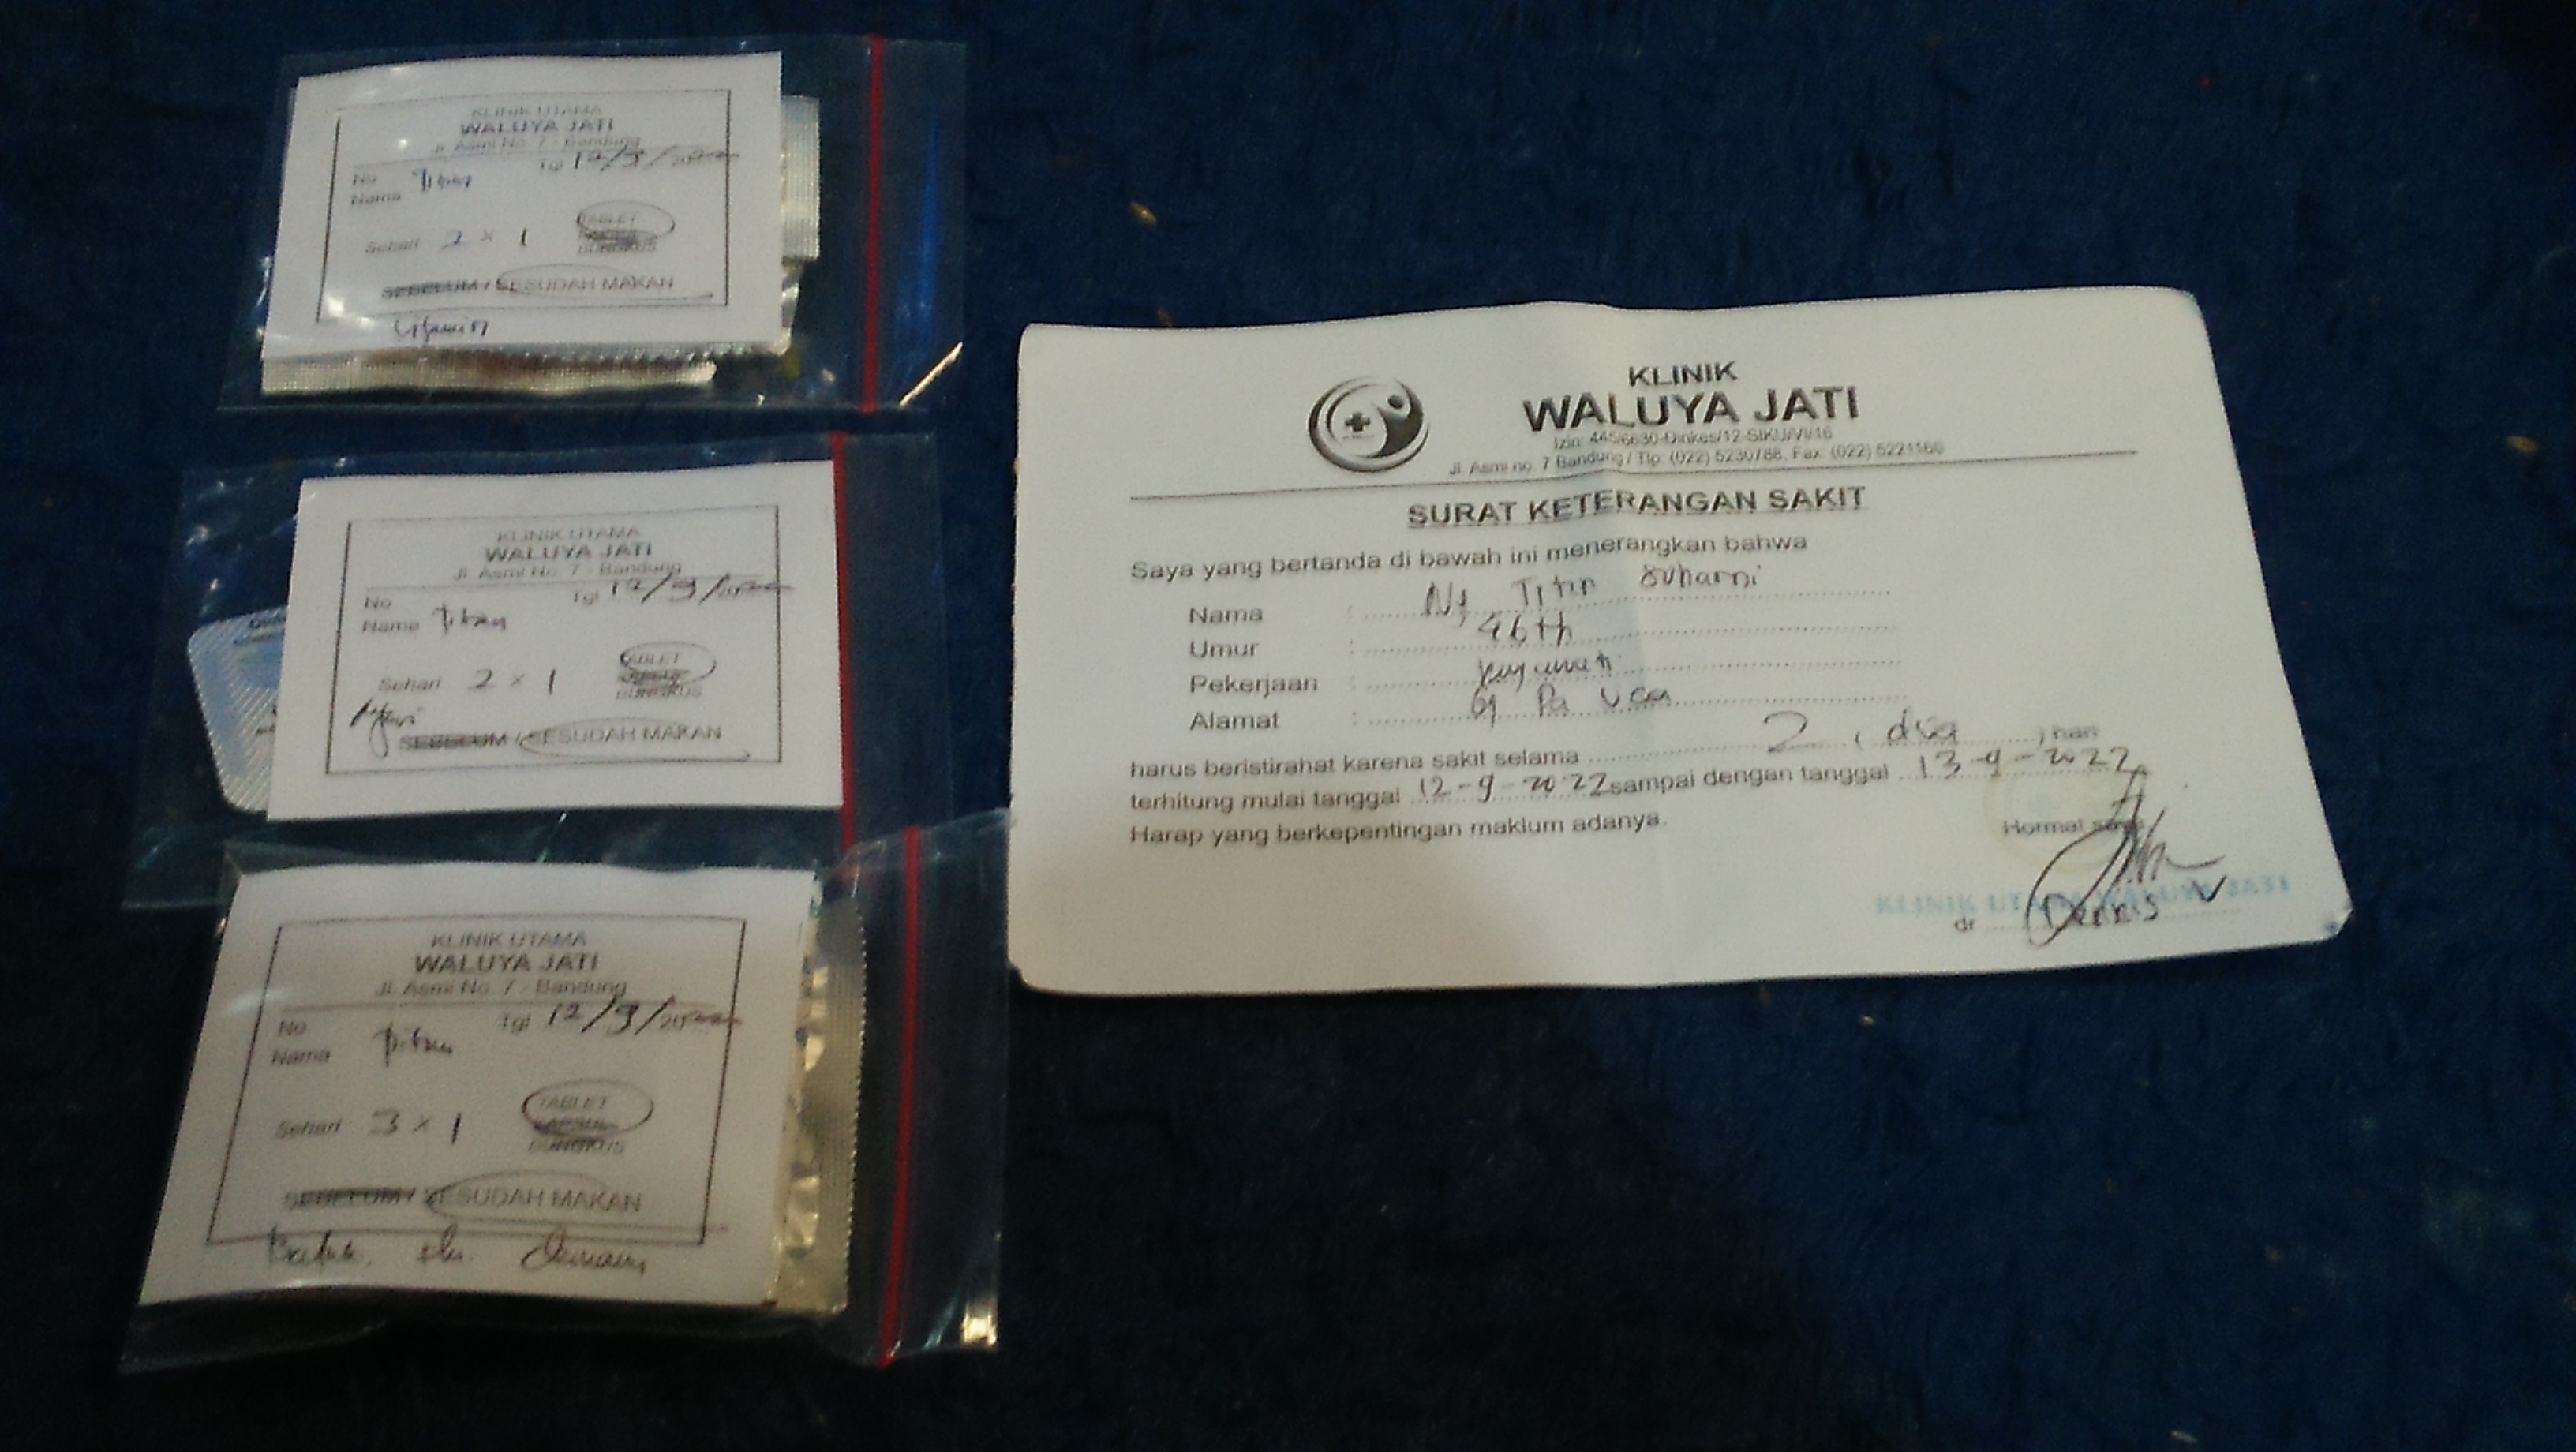 KLINIK UTAMA
WALUYA JATI
Jl. Asmi No. 7 - Bandung
No Tgl 12/9/20
Nama Titin
Sehari 2 x 1 TABLET
BUNGKUS
SEBELUM / SESUDAH MAKAN
Vitamin
KLINIK UTAMA
WALUYA JATI
Jl. Asmi No. 7 - Bandung
No Tgl 12/9/20
Nama Titin
Sehari 2 x 1 TABLET
BUNGKUS
SEBELUM / SESUDAH MAKAN
KLINIK UTAMA
WALUYA JATI
Jl. Asmi No. 7 - Bandung
No Tgl 12/9/20
Nama Titin
Sehari 3 x 1 TABLET
KAPSUL
BUNGKUS
SEBELUM / SESUDAH MAKAN
Batuk, flu, Demam
KLINIK
WALUYA JATI
Izin: 445/6630-Dinkes/12-SIKU/VI/16
Jl. Asmi no. 7 Bandung / Tlp: (022) 5230788, Fax: (022) 5221166
SURAT KETERANGAN SAKIT
Saya yang bertanda di bawah ini menerangkan bahwa
Nama : Ny Titin Suharni
Umur : 46 th
Pekerjaan : karyawati
Alamat : Gg Pa Uca
harus beristirahat karena sakit selama 2 ( dua ) hari
terhitung mulai tanggal 12-9-2022 sampai dengan tanggal 13-9-2022
Harap yang berkepentingan maklum adanya.
Hormat saya
KLINIK UTAMA WALUYA JATI
dr Dennis